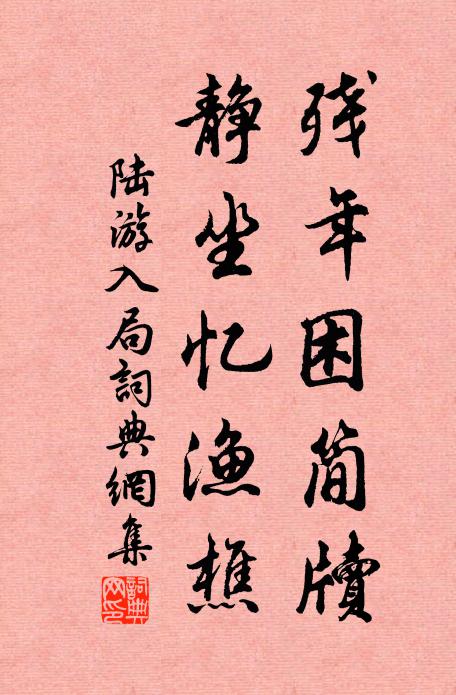 残年困简牍
静坐忆渔樵
陆游入局詞典網集
詞典
网印